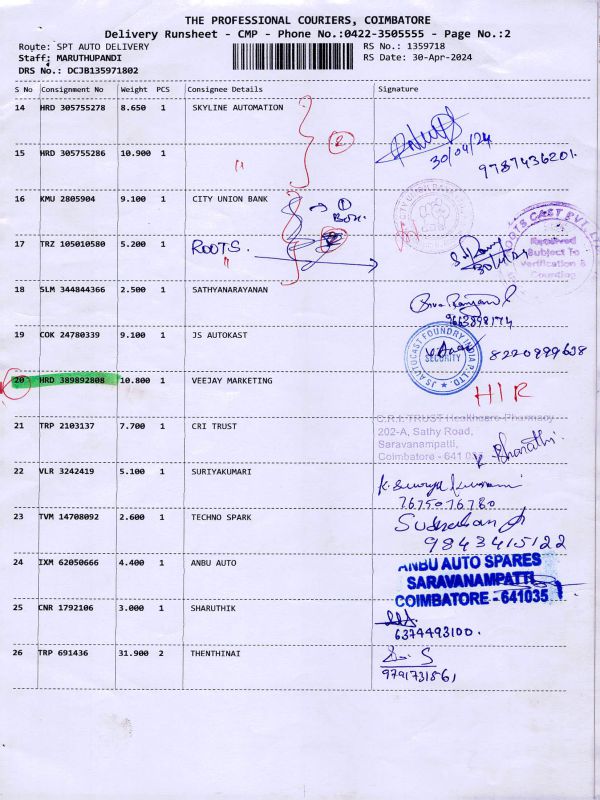 THE PROFESSIONAL COURIERS, COIMBATORE
Delivery Runsheet - CMP - Phone No.:0422-3505555 - Page No.:2
Route: SPT AUTO DELIVERY RS No.: 1359718
Staff: MARUTHUPANDI RS Date: 30-Apr-2024
DRS No.: DCJB135971802
S No Consignment No Weight PCS Consignee Details Signature
14 HRD 305755278 8.650 1 SKYLINE AUTOMATION
2
30/04/24
15 HRD 305755286 10.900 1 " 9787436201.
16 KMU 2805904 9.100 1 CITY UNION BANK → 1
Box.
17 TRZ 105010580 5.200 1 ROOTS.
"
ROOTS CAST PVT. LTD.
Received
Subject To
Verification &
Counting
18 SLM 344844366 2.500 1 SATHYANARAYANAN
9663898174
19 COK 24780339 9.100 1 JS AUTOKAST
JS AUTOCAST FOUNDRY INDIA P. LTD.
SECURITY
8220999638
20 HRD 389892808 10.800 1 VEEJAY MARKETING HIR
21 TRP 2103137 7.700 1 CRI TRUST
C.R.I. TRUST Healthcare Pharmacy
202-A, Sathy Road,
Saravanampatti,
Coimbatore - 641 035
K. Bharathi.
22 VLR 3242419 5.100 1 SURIYAKUMARI K. Suriya Kumari
7675076780
23 TVM 14708092 2.600 1 TECHNO SPARK
9843415122
24 IXM 62050666 4.400 1 ANBU AUTO
ANBU AUTO SPARES
SARAVANAMPATTI
COIMBATORE - 641035
25 CNR 1792106 3.000 1 SHARUTHIK
6374493100.
26 TRP 691436 31.900 2 THENTHINAI
9791731861